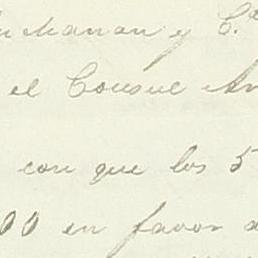 uchanan y C.ª
el Consul Am
con que los 5
00 en favor d